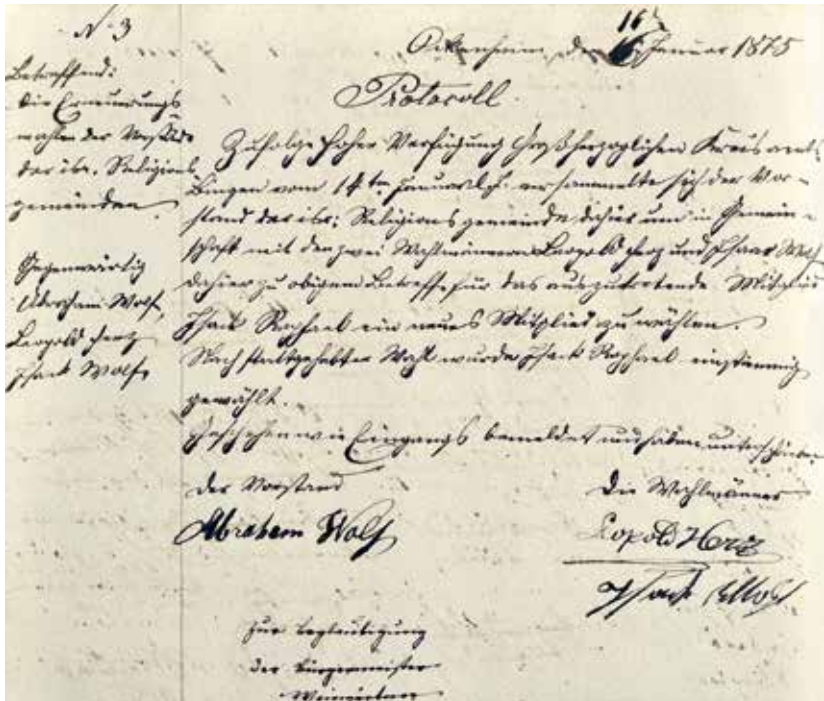 N. 3
Ockenheim, den 16ten Januar 1875
Betreffend:
die Erneuerungs
wahlen der Vorstände
der isr. Religions
gemeinden.
Gegenwärtig
Abraham Wolf,
Leopold Herz
Isaak Wolf,
Protocoll.
Zufolge hoher Verfügung Großherzoglichen Kreisamts
Bingen vom 14ten Januar l. J. versammelte sich der Vor-
stand der isr: Religionsgemeinde dahier um in Gemein-
schaft mit den zwei Wahlmännern Leopold Herz und Isaak Wolf
dahier zu obigem Betreffe für das auszutretende Mitglied
Isaak Raphael ein neues Mitglied zu wählen.
Nach stattgehabter Wahl wurde Isaak Raphael einstimmig
gewählt.
Geschehen wie Eingangs bemeldet und haben unterschrieben
Der Vorstand
Abraham Wolf
Die Wahlmänner
Leopold Herz
Isaak Wolf
Zur Beglaubigung
der Bürgermeister